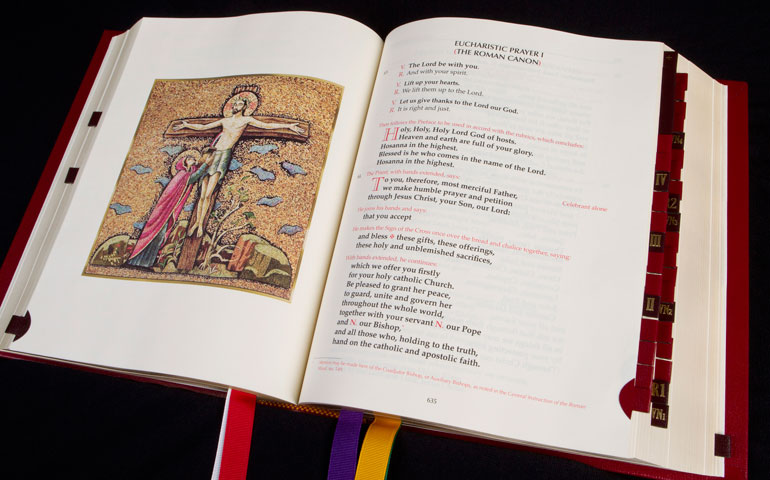 EUCHARISTIC PRAYER I
(THE ROMAN CANON)
V. The Lord be with you.
R. And with your spirit.
V. Lift up your hearts.
R. We lift them up to the Lord.
V. Let us give thanks to the Lord our God.
R. It is right and just.
Then follows the Preface to be used in accord with the rubrics, which concludes:
Holy, Holy, Holy Lord God of hosts.
Heaven and earth are full of your glory.
Hosanna in the highest.
Blessed is he who comes in the name of the Lord.
Hosanna in the highest.
The Priest, with hands extended, says:
To you, therefore, most merciful Father,
we make humble prayer and petition
through Jesus Christ, your Son, our Lord:
Celebrant alone
He joins his hands and says:
that you accept
He makes the Sign of the Cross once over the bread and chalice together, saying
and bless ✠ these gifts, these offerings,
these holy and unblemished sacrifices,
With hands extended, he continues:
which we offer you firstly
for your holy catholic Church.
Be pleased to grant her peace,
to guard, unite and govern her
throughout the whole world,
together with your servant N. our Pope
and N. our Bishop,*
and all those who, holding to the truth,
hand on the catholic and apostolic faith.
may be made here of the Coadjutor Bishop, or Auxiliary Bishops, as noted in the General Instruction of the Roman
Missal, no. 149.
635
IV
III
II
R1